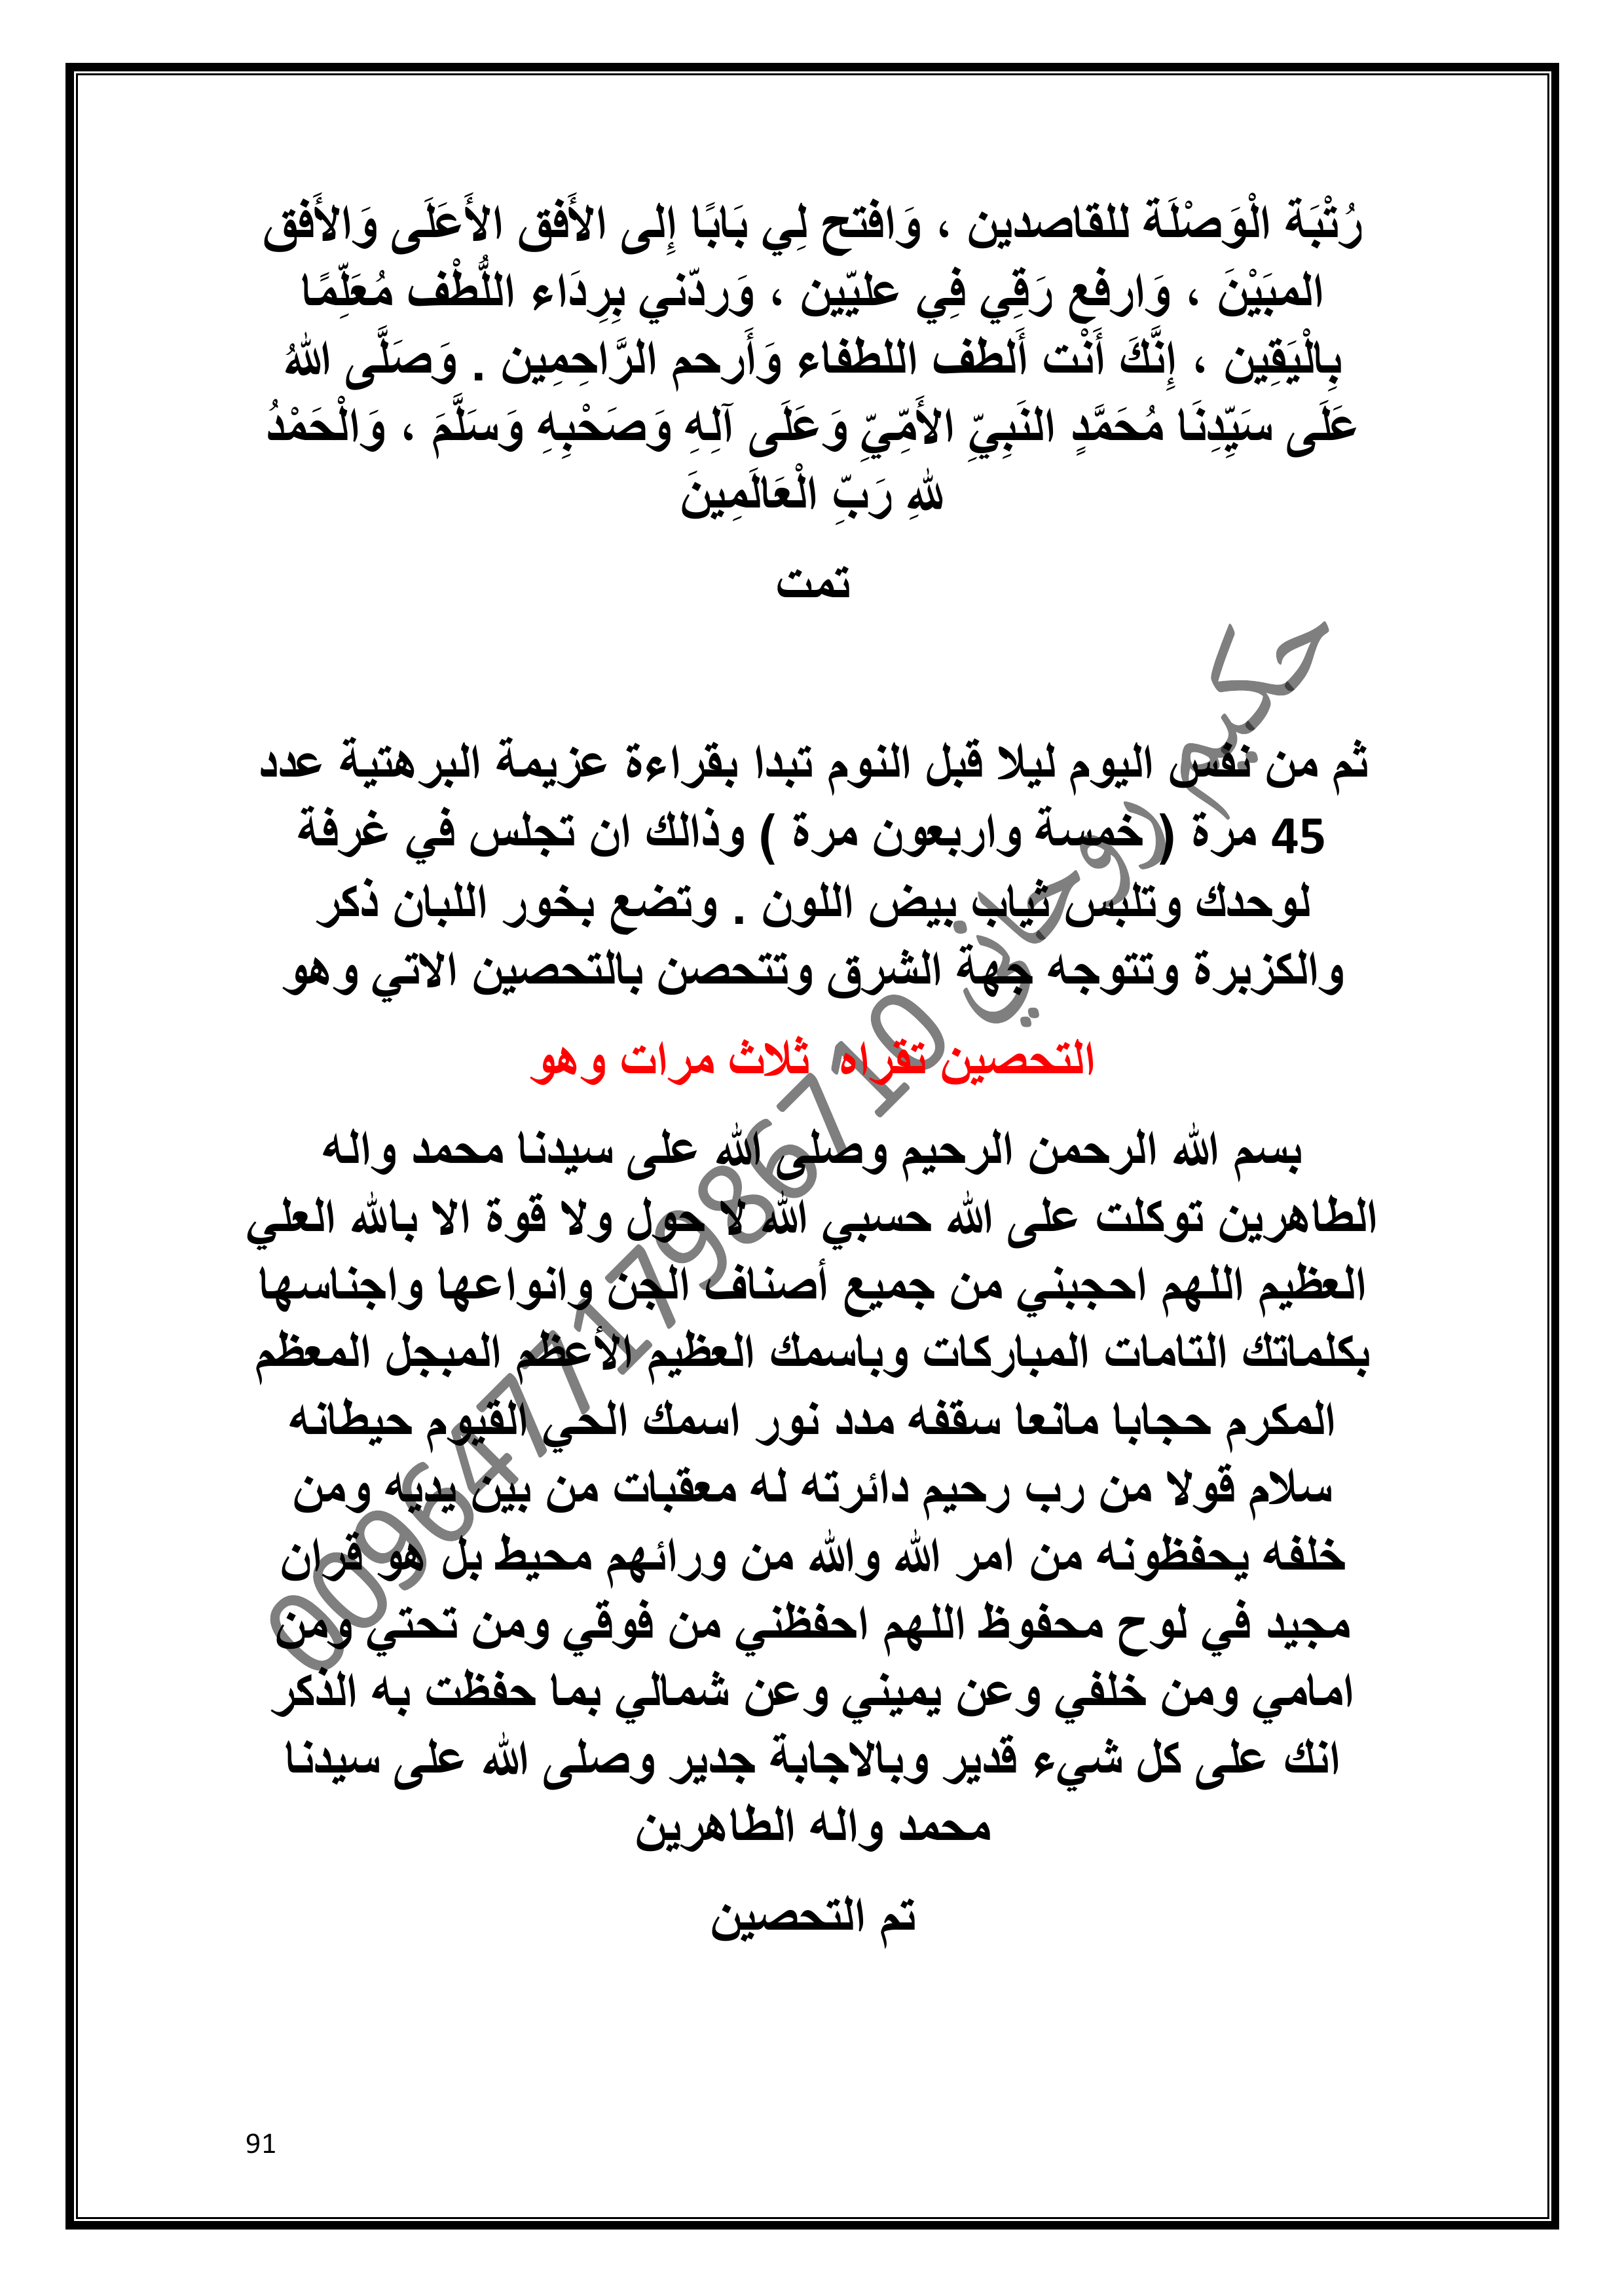 رُتْبَة الْوَصْلَة للقاصدين ، وَافتح لِي بَابًا إِلى الأَفق الأَعَلَى وَالأَفق
المبَيْنَ ، وَارفع رَقِي فِي عليّين ، وَردّني بِرِدَاء اللُّطْف مُعَلِّمًا
بِالْيَقِين ، إِنَّكَ أَنْت أَلطف اللطفاء وَأَرحم الرَّاحِمِين . وَصَلَّى اللهُ
عَلَى سَيِّدِنَا مُحَمَّدٍ النَبِيِّ الأَمِّيِّ وَعَلَى آلِهِ وَصَحْبِهِ وَسَلَّمَ ، وَالْحَمْدُ
للهِ رَبِّ الْعَالَمِينَ
تمت
ثم من نفس اليوم ليلا قبل النوم تبدا بقراءة عزيمة البرهتية عدد
45 مرة ( خمسة واربعون مرة ) وذالك ان تجلس في غرفة
لوحدك وتلبس ثياب بيض اللون . وتضع بخور اللبان ذكر
والكزبرة وتتوجه جهة الشرق وتتحصن بالتحصين الاتي وهو
التحصين تقراه ثلاث مرات وهو
بسم الله الرحمن الرحيم وصلى الله على سيدنا محمد واله
الطاهرين توكلت على الله حسبي الله لا حول ولا قوة الا بالله العلي
العظيم اللهم احجبني من جميع أصناف الجن وانواعها واجناسها
بكلماتك التامات المباركات وباسمك العظيم الأعظم المبجل المعظم
المكرم حجابا مانعا سقفه مدد نور اسمك الحي القيوم حيطانه
سلام قولا من رب رحيم دائرته له معقبات من بين يديه ومن
خلفه يحفظونه من امر الله والله من ورائهم محيط بل هو قران
مجيد في لوح محفوظ اللهم احفظني من فوقي ومن تحتي ومن
امامي ومن خلفي وعن يميني وعن شمالي بما حفظت به الذكر
انك على كل شيء قدير وبالاجابة جدير وصلى الله على سيدنا
محمد واله الطاهرين
تم التحصين
حكيم روحاني 009647717986710
91